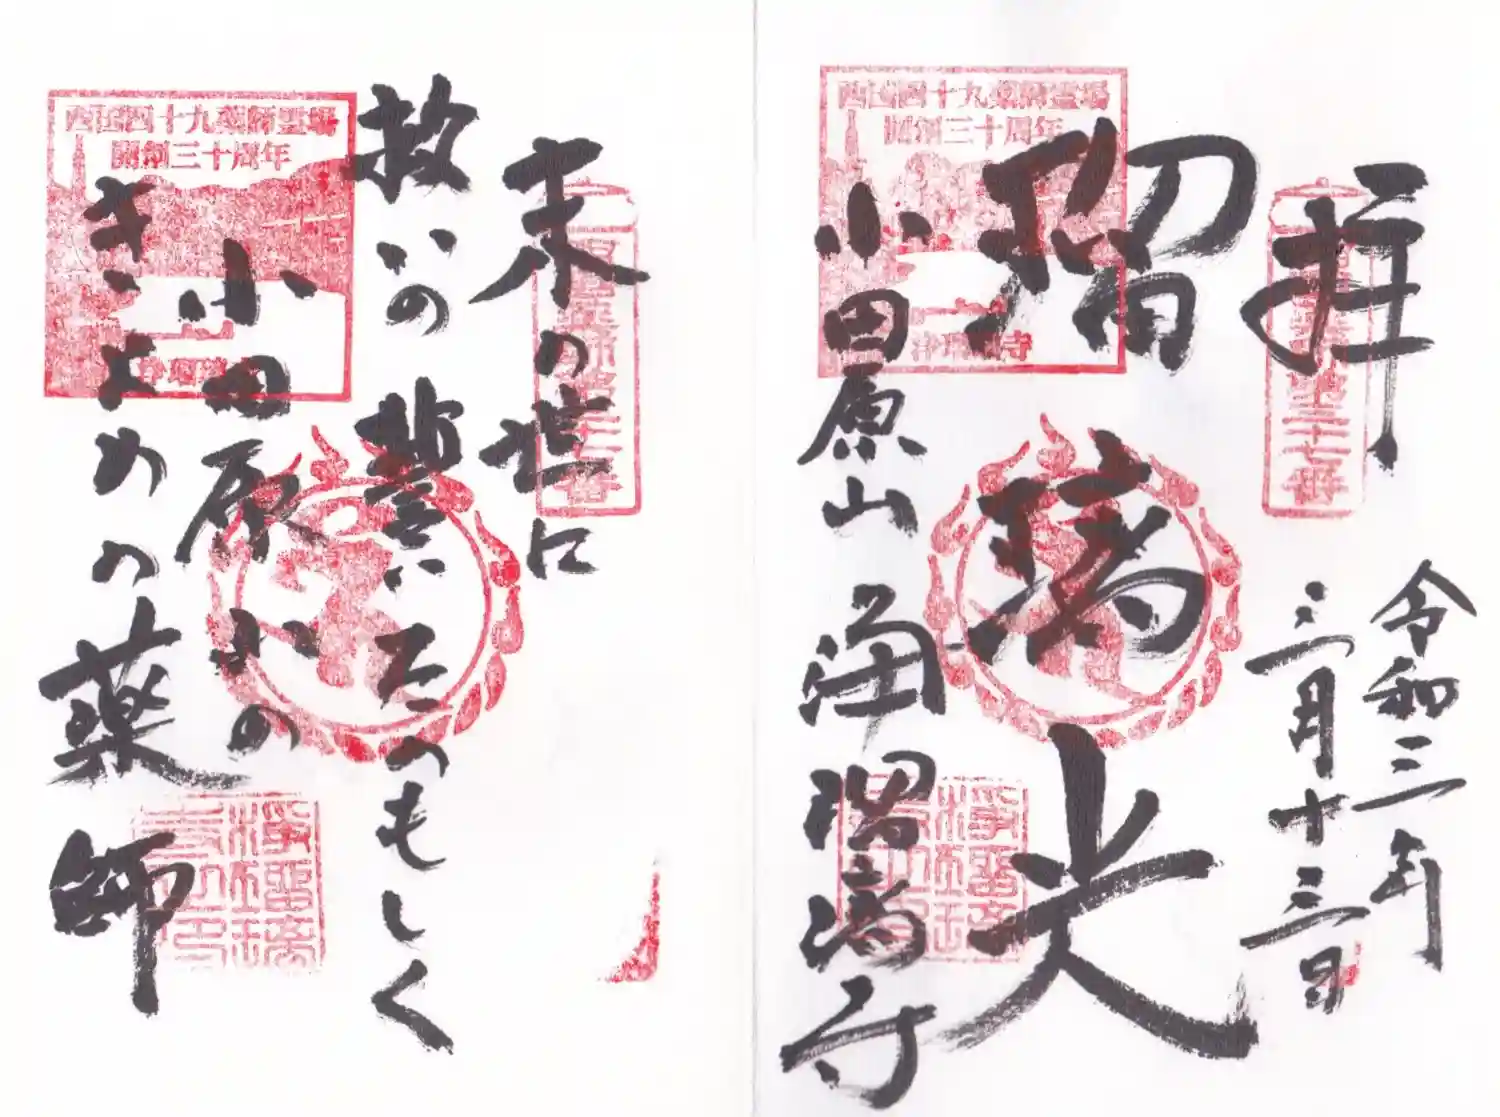 拝
令和三年
三月十三日
瑠璃光
小田原山 浄瑠璃寺
西国四十九薬師霊場
開創三十周年
浄瑠璃寺
西国薬師第三十七番
末の世に
救いの誓いたのもしく
小田原山の
きよめの薬師
西国四十九薬師霊場
開創三十周年